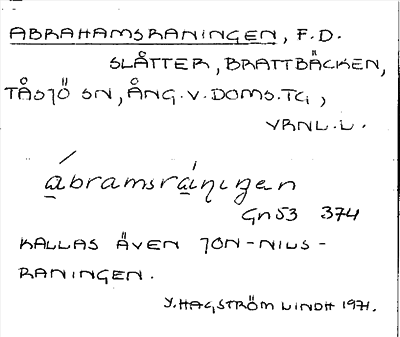 ABRAHAMSRANINGEN, F.D.
SLÅTTER, BRATTBÄCKEN,
TÅSJÖ SN, ÅNG.V.DOMS.TG,
VRNL.L.
ábramsráiŋiŋen
Gn53 374
KALLAS ÄVEN JON-NILS-
RANINGEN.
Y.HAGSTRÖM LINDH 1971.